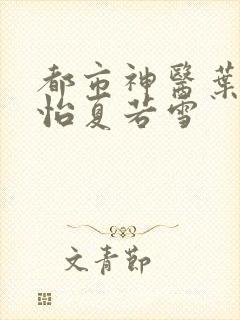 都市神醫葉
怡夏若雪
文青節